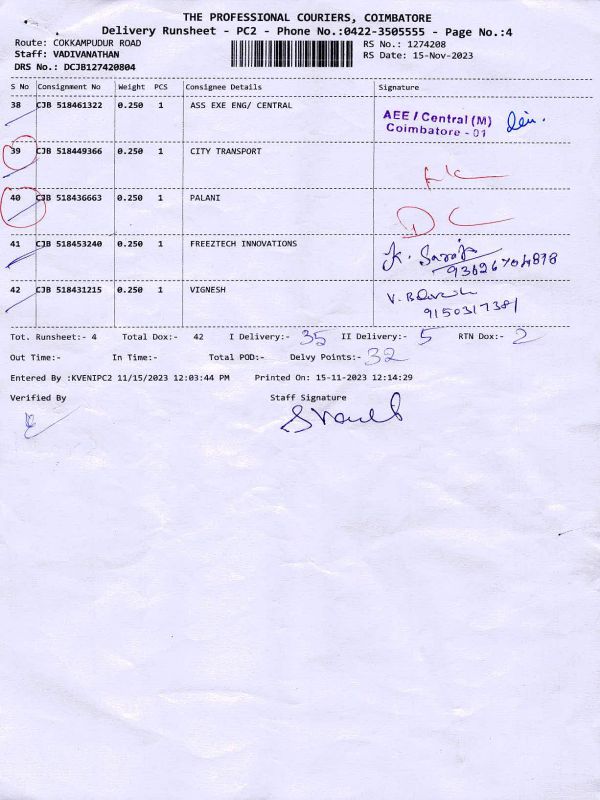 THE PROFESSIONAL COURIERS, COIMBATORE
Delivery Runsheet - PC2 - Phone No.:0422-3505555 - Page No.:4
Route: COKKAMPUDUR ROAD RS No.: 1274208
Staff: VADIVANATHAN RS Date: 15-Nov-2023
DRS No.: DCJB127420804
S No Consignment No Weight PCS Consignee Details Signature
38 CJB 518461322 0.250 1 ASS EXE ENG/ CENTRAL
AEE / Central (M)
Coimbatore - 01
39 CJB 518449366 0.250 1 CITY TRANSPORT
40 CJB 518436663 0.250 1 PALANI
DC
41 CJB 518453240 0.250 1 FREEZTECH INNOVATIONS
42 CJB 518431215 0.250 1 VIGNESH
9150317381
Tot. Runsheet:- 4 Total Dox:- 42 I Delivery:- 35 II Delivery:- 5 RTN Dox:- 2
Out Time:- In Time:- Total POD:- Delvy Points:- 32
Entered By :KVENIPC2 11/15/2023 12:03:44 PM Printed On: 15-11-2023 12:14:29
Verified By Staff Signature